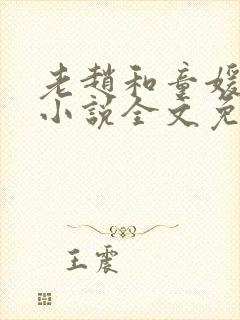 老趙和童媛
小說全文免
王震